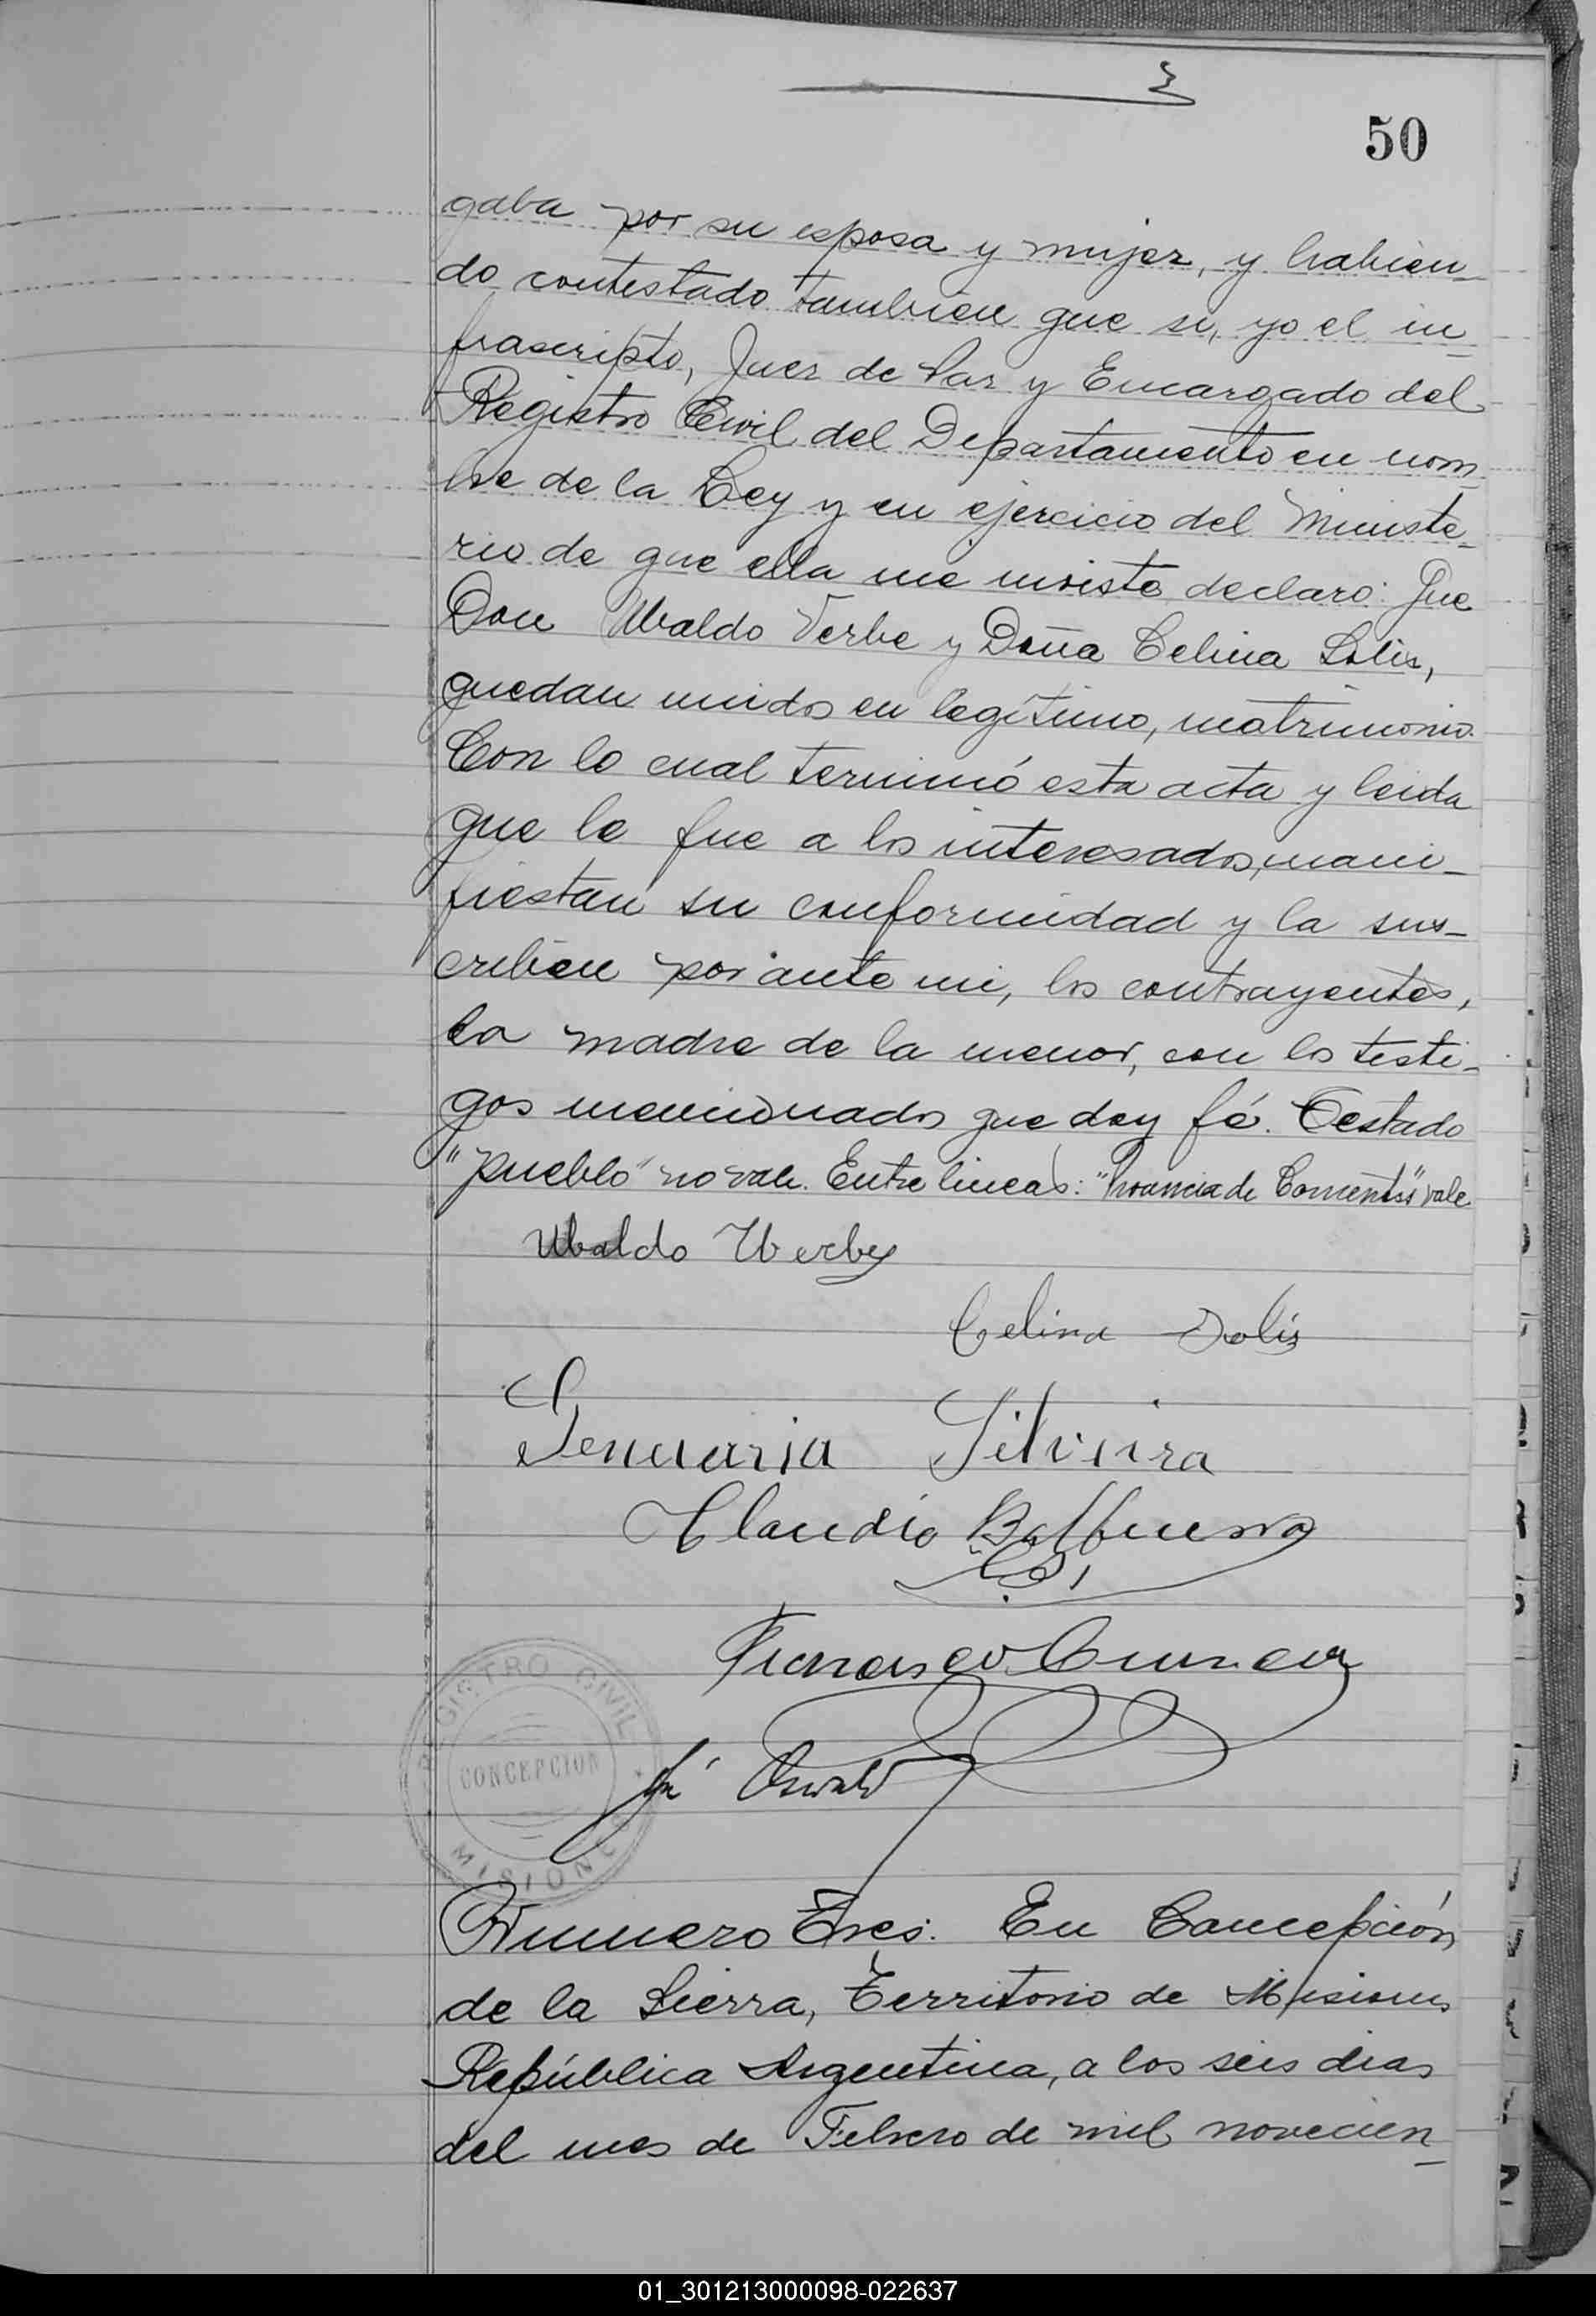 50
gaba por su esposa y mujer, y habien-
do contestado tambien que si, yo el in-
frascripto, Juez de Paz y Encargado del
Registro Civil del Departamento en nom-
bre de la Ley y en ejercicio del Ministe-
rio de que ella me inviste, declaro: Que
Don Ubaldo Verbe y Doña Celina Solis,
quedan unidos en legítimo, matrimonio.
Con lo cual terminó esta acta y leida
que le fue a los interesados, mani-
fiestan su conformidad y la sus-
criben por ante mi, los contrayentes,
la madre de la menor, con los testi-
gos mencionados que doy fé. Testado
"pueblo" no vale. Entre lineas: "Provincia de Corrientes" vale
Ubaldo Werbe
Celina Solis
Genuaria Silveira
Claudio Balbuena
Francisco
REGISTRO CIVIL
CONCEPCION
MISIONES
Oswald
Número Tres: En Concepción
de la Sierra, Territorio de Misiones
República Argentina, a los seis dias
del mes de Febrero de mil novecien-
01_301213000098-022637